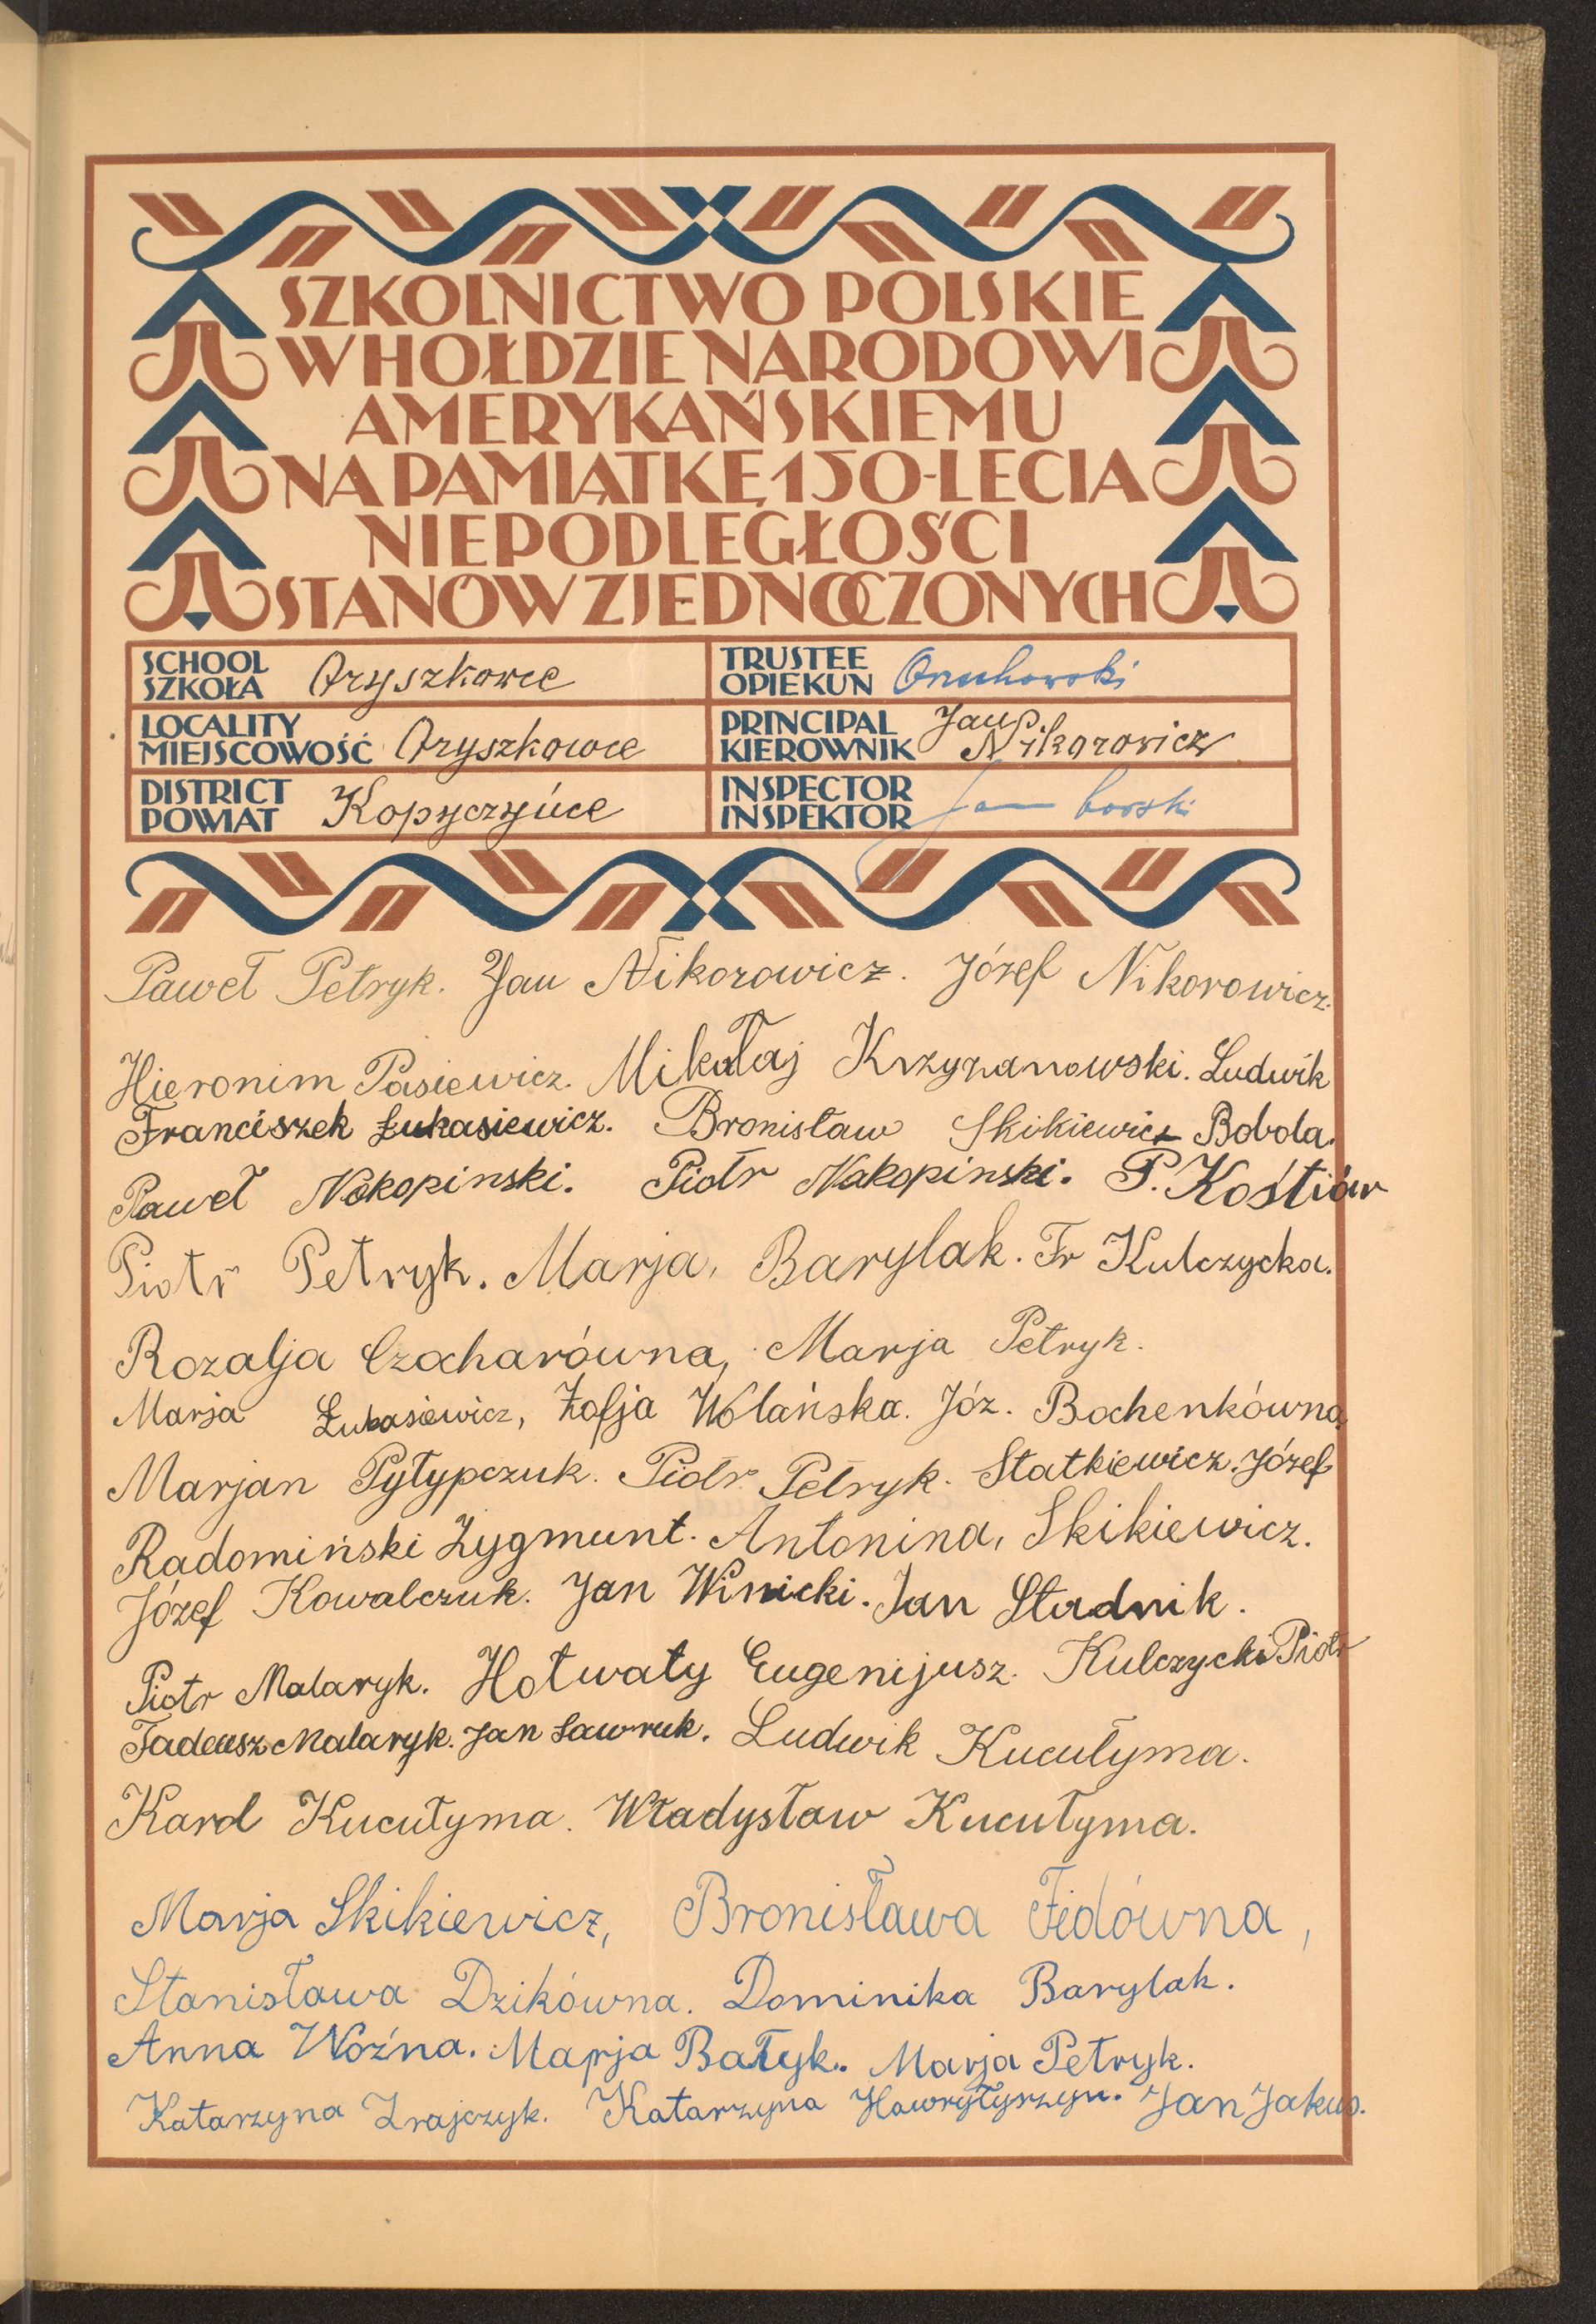 SZKOLNICTWO POLSKIE
W HOŁDZIE NARODOWI
AMERYKAŃSKIEMU
NA PAMIĄTKĘ 150-LECIA
NIEPODLEGŁOŚCI
STANÓW ZJEDNOCZONYCH
SCHOOL
SZKOŁA Oryszkowce
TRUSTEE
OPIEKUN Onuchowski
LOCALITY
MIEJSCOWOŚĆ Oryszkowce
PRINCIPAL
KIEROWNIK Jan
Nikorowicz
DISTRICT
POWIAT Kopyczyńce
INSPECTOR
INSPEKTOR
Paweł Petryk. Jan Nikorowicz. Józef Nikorowicz.
Hieronim Pasiewicz. Mikołaj Krzyżanowski. Ludwik
Franciszek Łukasiewicz. Bronisław Skikiewicz Bobola.
Paweł Nakopinski. Piotr Nakopinski. P. Kośtiów
Piotr Petryk. Marja, Barylak. Fr Kulczycka.
Rozalja Czocharówna, Marja Petryk.
Marja Łukasiewicz, Zofja Wolańska. Józ. Bochenkówna,
Marjan Pyłypczuk. Piotr Petryk. Statkiewicz. Józef
Radomiński Zygmunt. Antonina, Skikiewicz.
Józef Kowalczuk. Jan Winicki. Jan Stadnik.
Piotr Malaryk. Hotwaty Eugenijusz. Kulczycki Piotr
Tadeusz Malaryk. Jan Ławruk. Ludwik Kucułyma.
Karol Kucułyma. Władysław Kucułyma.
Marja Skikiewicz, Bronisława Fidówna,
Stanisława Dzikówna. Dominika Barylak.
Anna Woźna. Marja Bałyk. Marja Petryk.
Katarzyna Zrajczyk. Katarzyna Hawryłyszyn. Jan Jakub.